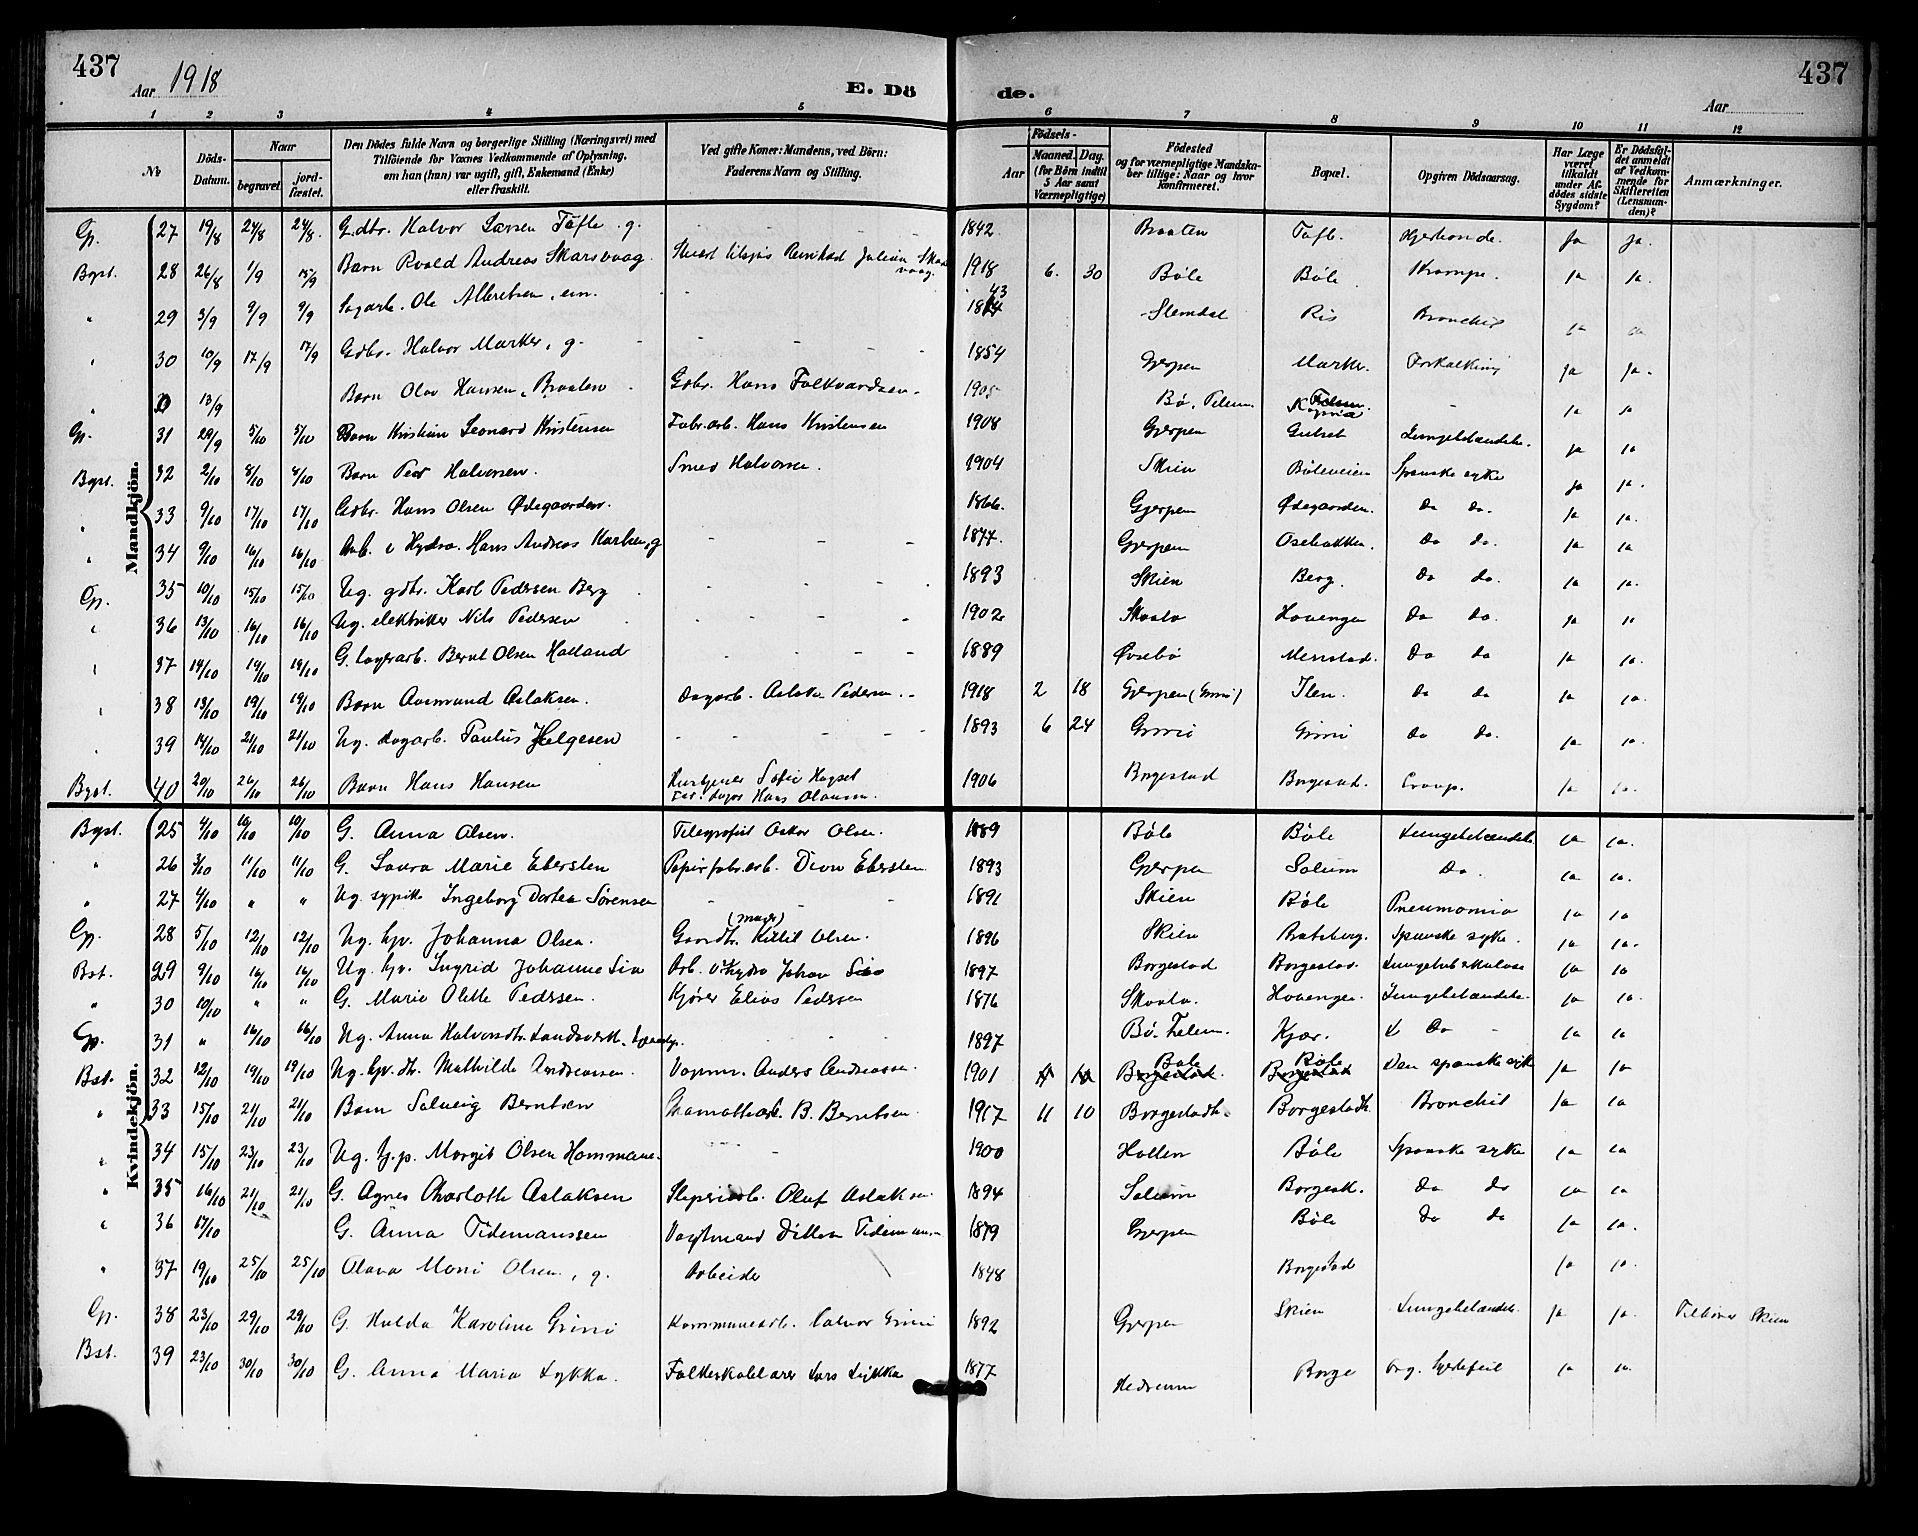 437
Aar 1918
E. Dö
de.
437
Aar
1 2 3 4 5 6 7 8 9 10 11 12
No
Döds-Datum.
Naar
begravet.
jord-fæstet.
Den Dödes fulde Navn og borgerlige Stilling (Næringsvei) med
Tilföiende for Vœnes Vedkommende af Oplysning,
om han (hun) var ugift, gift, Enkemand (Enke)
eller fraskilt.
Ved gifte Koner: Mandens, ved Börn:
Faderens Navn og Stilling.
Födsels-
Aar
Maaned. Dag.
(for Börn indtil 5 Aar samt Værnepligtige)
Födested
og for værnepligtige Mandska-
ber tillige: Naar og hvor
konfirmeret.
Bopæl.
Opgiven Dödsaarsag.
Har Læge været tilkaldt under Afdödes sidste Sygdom?
Er Dödsfaldet anmeldt af Vedkommende for Skifteretten (Lensmanden)?
Anmærkninger.
Mandkjön.
Gp. 27 19/8 24/8 24/8 Gdbr. Halvor Larsen Tufte. g. 1842 Braaten Tufte Hjertesnde. ja ja.
Bgst. 28 26/8 1/9 15/9 Barn Roald Andreas Skarsvaag. Julian Skarsvaag. 1918 6. 30 Bøle Bøle Krampe. ja ja.
" 29 3/9 9/9 9/9 Sagarb. Ole Albretsen, em. 43 Slemdal Ris Bronchit ja ja
" 30 10/9 17/9 17/9 Gdbr. Halvor Marker, g. 1854 Gjerpen Marker. Forkalkning ja ja.
13/9 Barn Olav Hansen, Braaten Gdbr. Hans Folkvardsen. 1905 Bø, Telem. ja ja
Gp. 31 29/9 5/10 5/10 Barn Kristian Leonard Kristensen Fabr.arb. Hans Kristensen 1908 Gjerpen Gulset Lungebetændelse. ja ja
Bgst. 32 2/10 8/10 8/10 Barn Peder Halvorsen. Smed Halvorsen. 1904 Skien Bøleveien Spanske syke ja ja.
" 33 9/10 17/10 17/10 Gdbr. Hans Olsen Ødegaarden. 1866. Gjerpen Ødegaarden. Do do. ja ja.
" 34 9/10 16/10 16/10 Arb. v Hydro. Hans Andreas Karlsen, g 1877. Gjerpen Osebakken. Do do. ja ja
Gp. 35 10/10 15/10 15/10 Ug. gdbr. Karl Pedersen Berg 1893 Skien Berg. Do do. ja ja.
" 36 13/10 16/10 16/10 Ug. elektriker Nils Pedersen 1902 Skaato Hovenga Do do. ja ja
" 37 14/10 19/10 19/10 G. lagerarb. Bernt Olsen Hatland 1889 Øvsebø Menstad. Do do ja ja.
" 38 13/10 19/10 19/10 Barn Aasmund Aslaksen. Dagarb. Aslak Pedersen. 1918 2 18 Gjerpen (Grini) Ilen. Do do ja ja.
" 39 14/10 21/10 21/10 Ug. dagarb. Paulus Helgesen 1893 6 24 Grini Grini Do do. ja ja.
Bgst. 40 20/10 26/10 26/10 Barn Hans Hansen Sofie Høgset Hans Olausen. 1906 Borgestad Borgestad. Croup. ja ja.
Kvindekjön.
Bgst. 25 4/10 10/10 10/10 G. Anna Olsen. Telegrafist Oskar Olsen. 1889 Bøle Bøle Lungebetændelse ja ja.
" 26 3/10 11/10 11/10 G. Laura Marie Ebersten Papirfabr.arb. Ebersten 1893 Gjerpen Solum Do. ja ja.
" 27 4/10 " " Ug. sypike Ingeborg Dortea Sørensen 1891 Skien Bøle Pneumonia ja ja
Gp. 28 5/10 12/10 12/10 Ug. hp. Johanna Olsen. Gaardbr. Kittil Olsen. 1896 Skien Bratsberg. Spanske syke. ja ja.
Bst. 29 9/10 16/10 16/10 Ug. hp. Ingrid Johanne Lia Arb. v. Hydro Johan Lia 1897 Borgestad Borgestad. Lungetuberkulose ja ja
" 30 10/10 " " G. Marie Olette Pedersen. Kjører Elias Pedersen 1876 Skaato. Hovenga. Lungebetændelse. ja ja.
Gp. 31 " 16/10 16/10 Ug. Anna Halvorsdtr. Landsverk. 1897 Bø. Telem. Kjær. Do ja ja
Bst. 32 12/10 19/10 19/10 Ug. hp. dtr. Mathilde Andreassen. Vognm. Anders Andreassen. 1901 Bøle Borgestad. Bøle Borgestad Den spanske syke ja ja
" 33 15/10 21/10 21/10 Barn Solveig Berntsen B. Berntsen. 1917 11 10 Borgestadh. Borgestadh. Bronchit ja ja
" 34 15/10 23/10 23/10 Ug. hp. Margit Olsen Hammane. 1900 Hollen Bøle Spanske syke ja ja
" 35 16/10 21/10 21/10 G. Agnes Charlotte Aslaksen Sliperiarb. Oluf Aslaksen. 1894 Solum Borgesk. Do do ja ja
" 36 17/10 G. Anna Tidemanssen Vagtmand Tidemansen 1879 Gjerpen Bøle Do do ja ja.
" 37 19/10 25/10 25/10 Olava Marie Olsen, g. Arbeider 1848 Borgestad ja ja.
Gp. 38 23/10 29/10 29/10 G. Hulda Karoline Grini Kommunearb. Halvor Grini 1892 Gjerpen Skien Lungebetændelse. ja ja. Tilhører Skien
Bst. 39 23/10 30/10 30/10 G. Anna Maria Lykka. Folkeskolelærer Lars Lykka 1877 Hedrum Borge Org. hjertefeil ja ja.